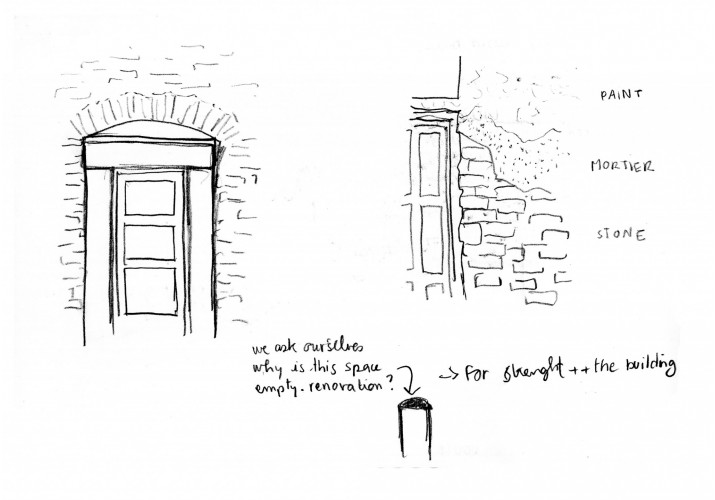 PAINT
MORTIER
STONE
we ask ourselves
why is this space
empty. renovation?
-> For strenght ++ the building